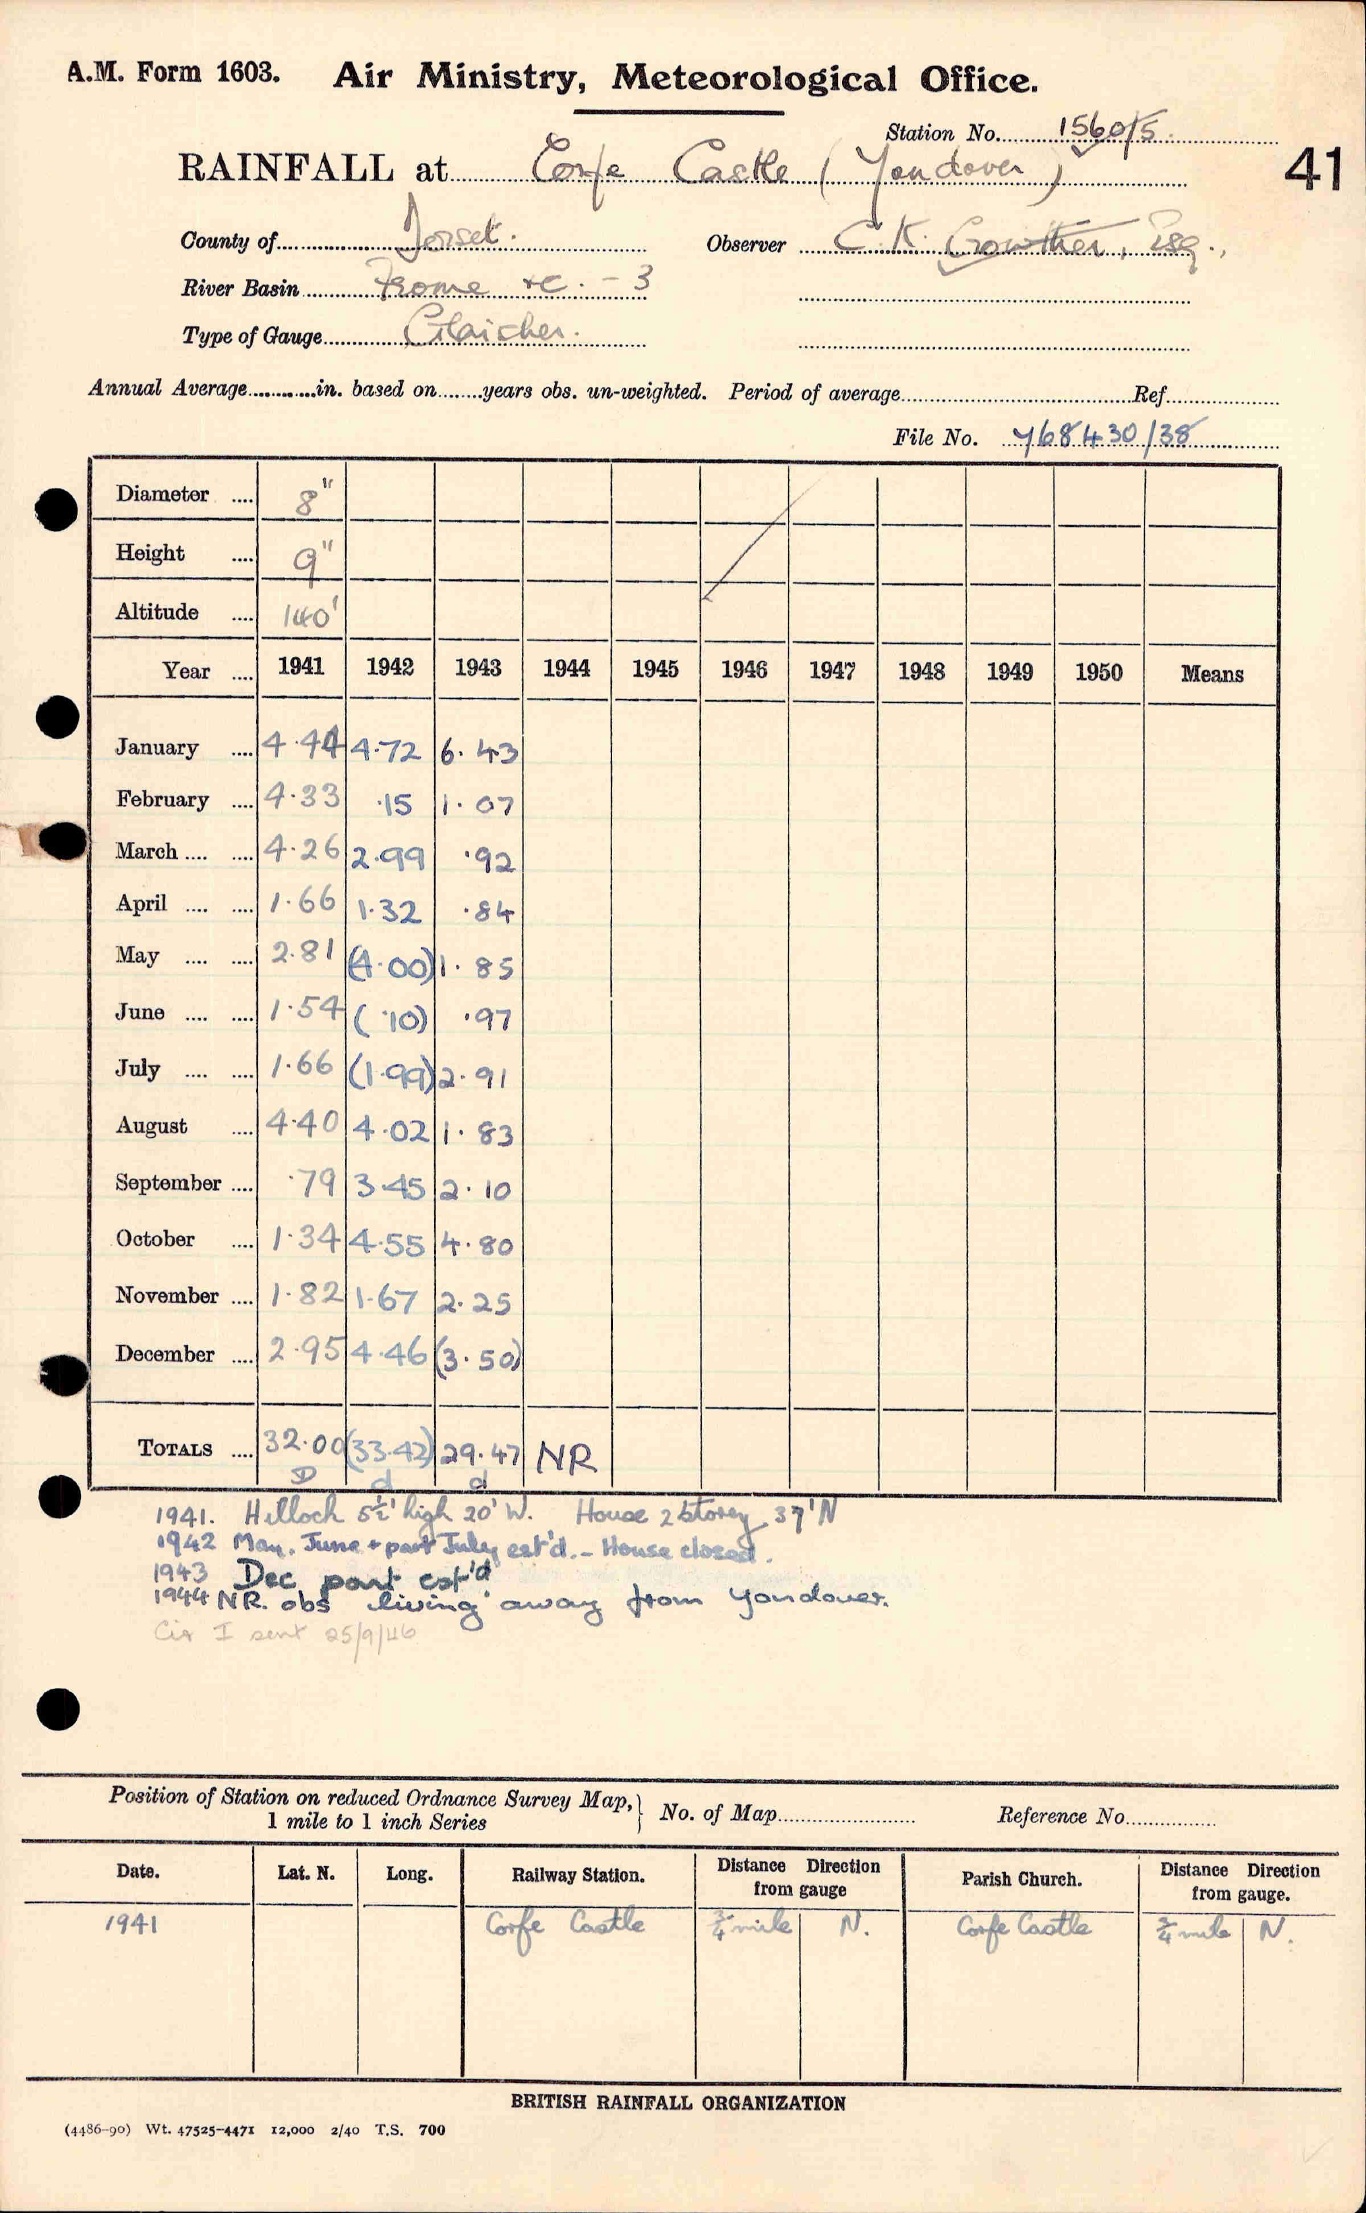 A.M. Form 1603. Air Ministry, Meteorological Office.
Station No. 1560/5
41
RAINFALL at Corfe Castle (Yondover)
County of Dorset. Observer C. K. Crowther, Esq.,
River Basin Frome &c. - 3
Type of Gauge Glaisher.
Annual Average in. based on years obs. un-weighted. Period of average Ref
File No. 768430/38
Diameter 8"
Height 9"
Altitude 140'
Year 1941 1942 1943 1944 1945 1946 1947 1948 1949 1950 Means
January 4.44 4.72 6.43
February 4.33 .15 1.07
March 4.26 2.99 .92
April 1.66 1.32 .84
May 2.81 (4.00) 1.85
June 1.54 (.10) .97
July 1.66 (1.99) 2.91
August 4.40 4.02 1.83
September .79 3.45 2.10
October 1.34 4.55 4.80
November 1.82 1.67 2.25
December 2.95 4.46 (3.50)
TOTALS 32.00 (33.42) 29.47 NR
D d d
1941. Hillock 5½' high 20' W. House 2 storey 37' N
1942 May, June + part July est'd. - House closed.
1943 Dec part est'd
1944 NR. obs living away from Yondover.
Cir I sent 25/9/46
Position of Station on reduced Ordnance Survey Map, } No. of Map Reference No.
1 mile to 1 inch Series
Date. Lat. N. Long. Railway Station. Distance Direction from gauge Parish Church. Distance Direction from gauge.
1941 Corfe Castle ¾ mile N. Corfe Castle ¾ mile N.
BRITISH RAINFALL ORGANIZATION
(4486-90) Wt. 47525-4471 12,000 2/40 T.S. 700